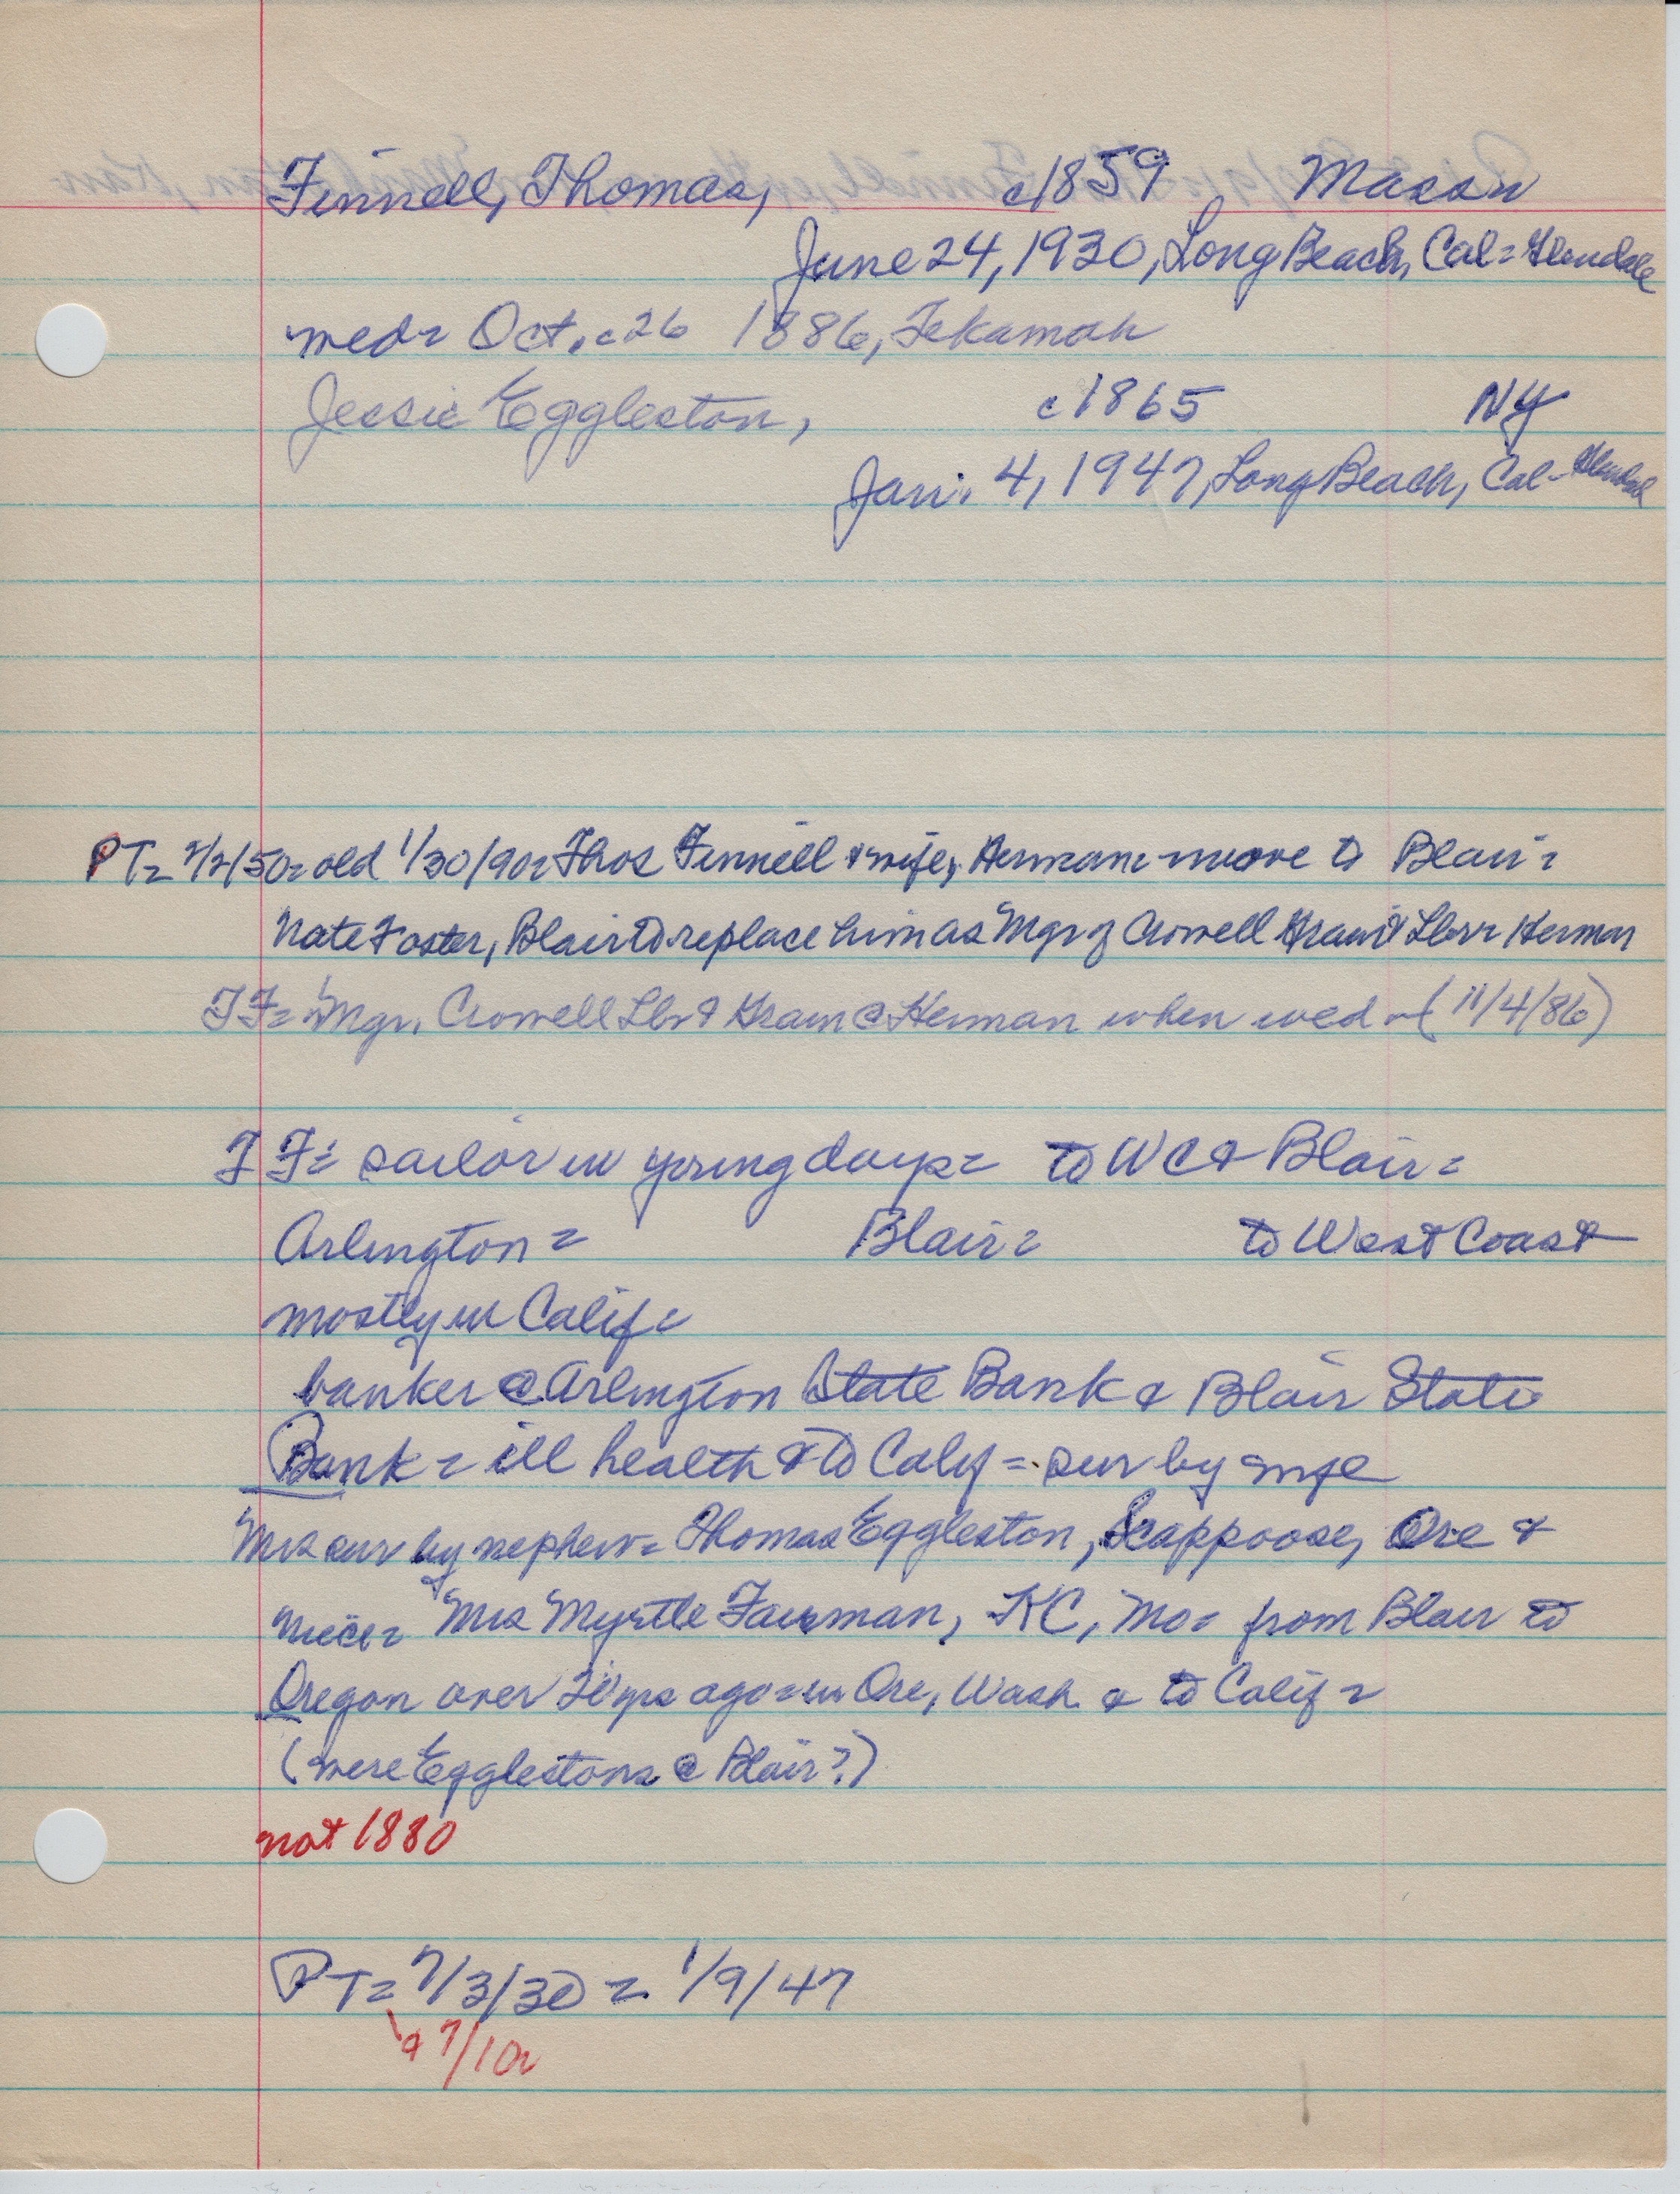 Finnell, Thomas, c1859 Mason
June 24, 1930, Long Beach, Cal = Glendale
wed = Oct. c26 1886, Tekamah
Jessie Eggleston, c1865 NY
Jan. 4, 1947, Long Beach, Cal - Glendale
PT= 2/2/50= old 1/30/90= Thos Finnell & wife, Herman= move to Blair =
Nate Foster, Blair to replace him as Mgr of Crowell Grain & Lbr = Herman
TF= Mgr. Crowell Lbr & Grain @ Herman when wed = (11/4/86)
TF= sailor in young days = to WC & Blair =
Arlington = Blair = to West Coast
mostly in Calif =
banker @ Arlington State Bank & Blair State
Bank = ill health & to Calif = sur by wife
Mrs sur by nephew = Thomas Eggleston, Scappoose, Ore &
niece = Mrs Myrtle , KC, Mo = from Blair to
Oregon over yrs ago = in Ore, Wash & to Calif =
(were Egglestons @ Blair?)
not 1880
PT= 7/3/30 = 1/9/47
& 7/10=